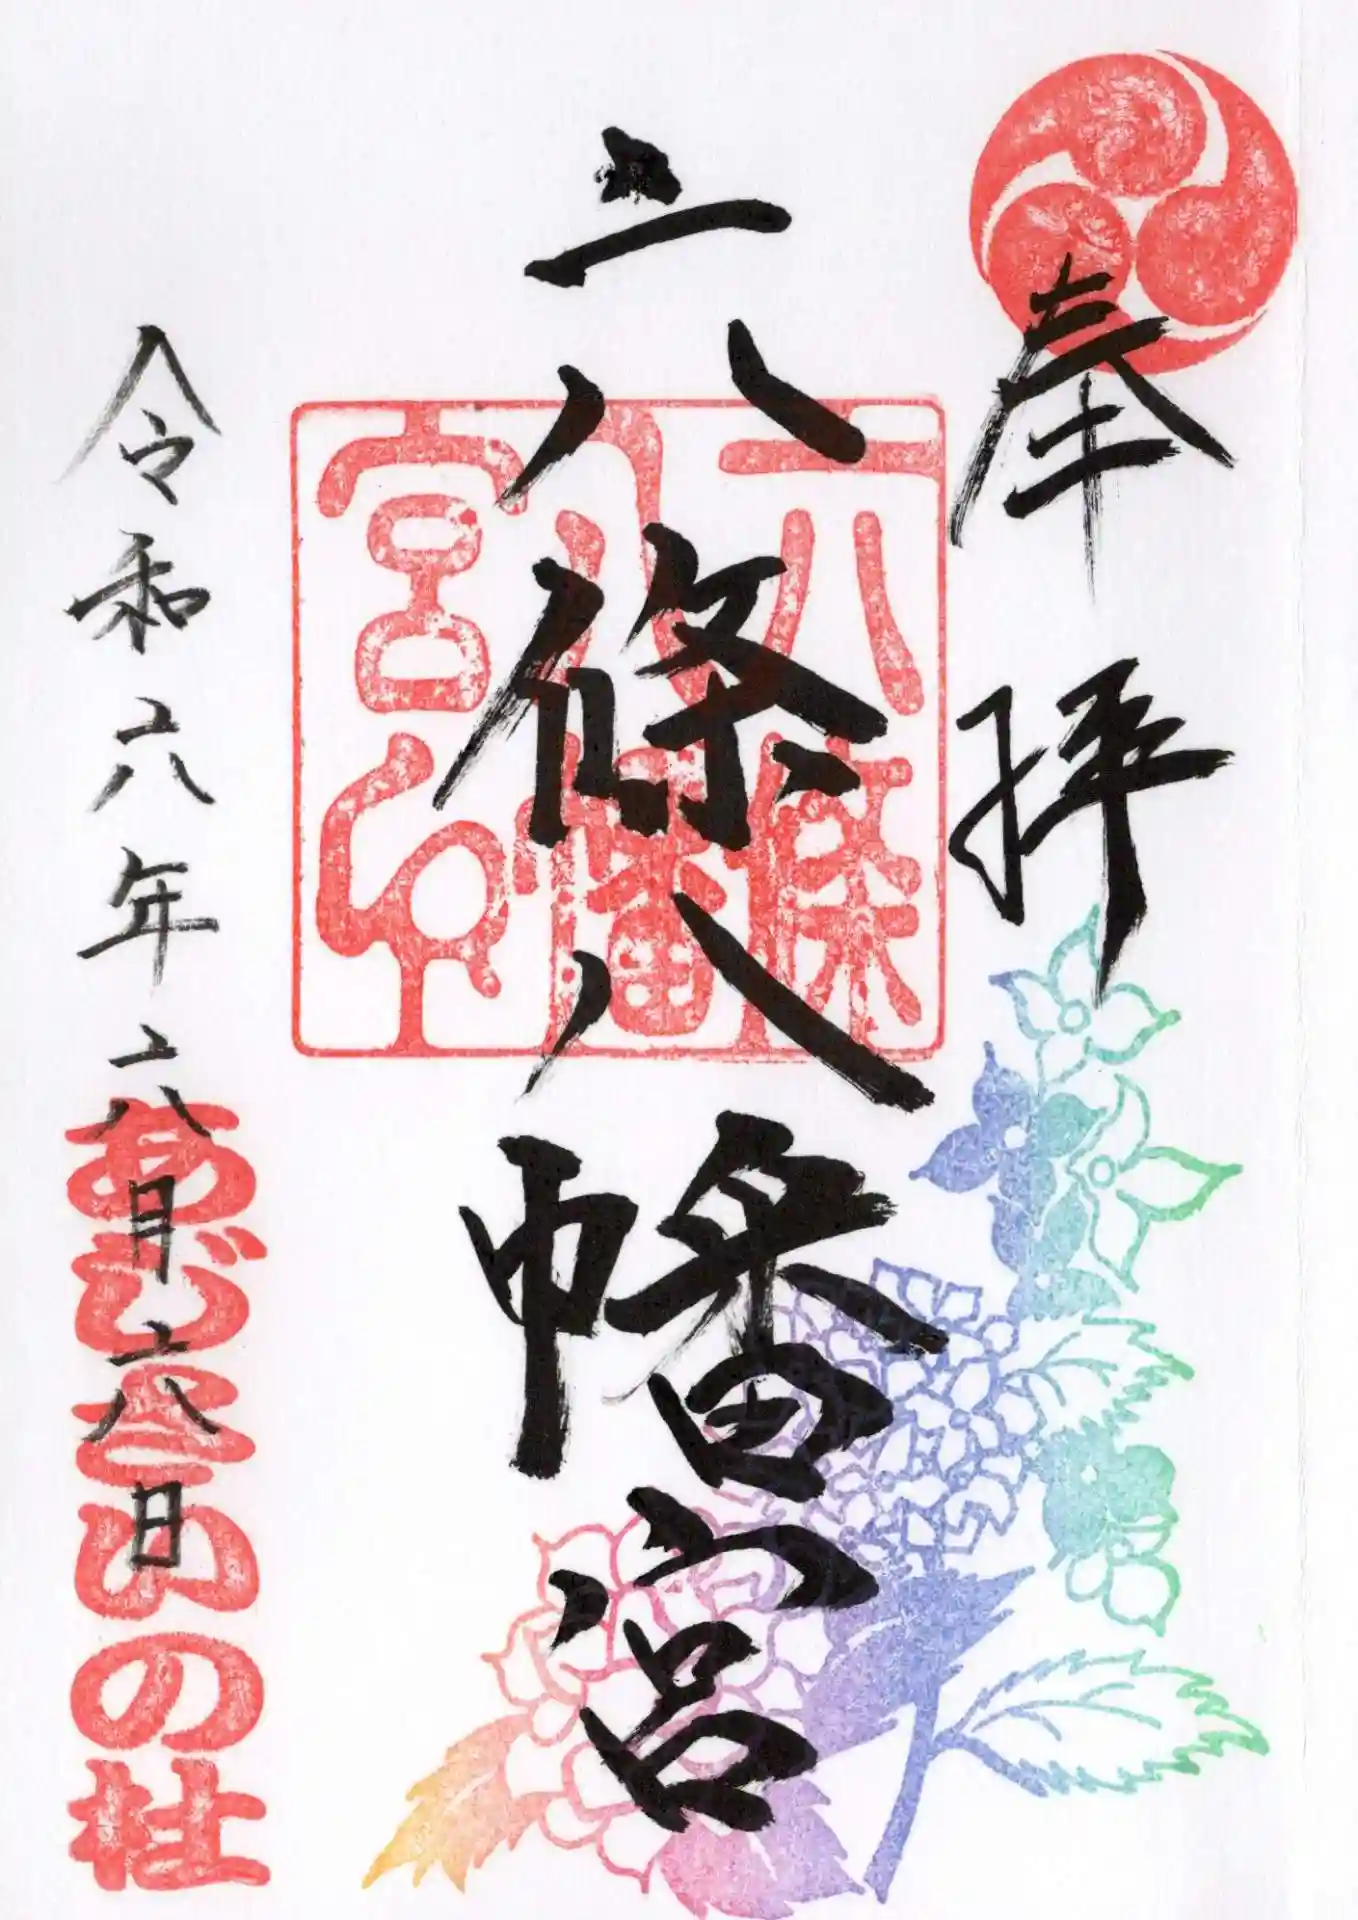 奉拝
六條八幡宮
六條
八幡
宮印
令和六年六月六日
あじさいの杜